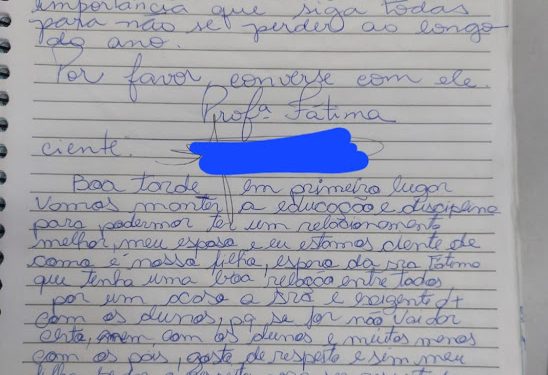 importância que siga todas
para não se perder ao longo
do ano.
Por favor, converse com ele.
Profª Fátima
ciente.
Boa tarde, em primeiro lugar
Vamos manter a educação e disciplina
para podermor ter um relacionamento
melhor, meu esposo e eu estamos ciente de
como é nosso filho, espero da sra Fátima
que tenha uma boa relação entre todos
por um acaso a sra é exigente d+
com os alunos, pq se for não vai dar
certo, nem com os alunos e muitos menos
com os pais, gosto de respeito e sim meu